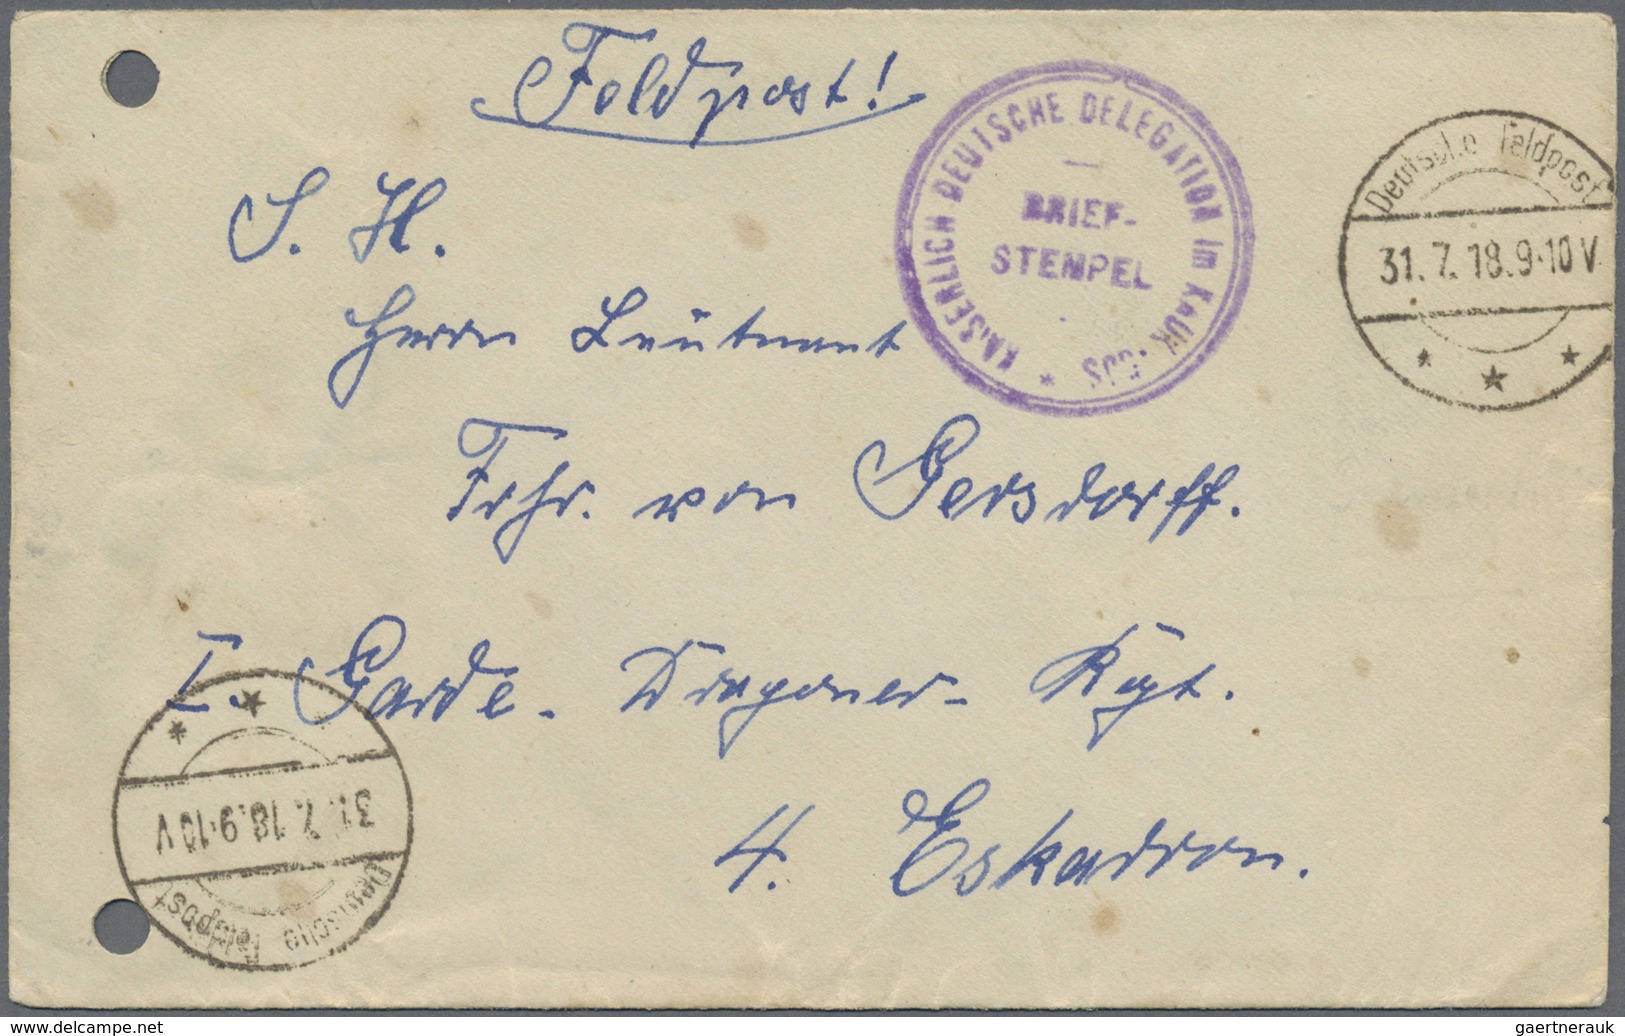 Feldpost!
KAISERLICH DEUTSCHE DELEGATION im KAUK SUS *
BRIEF-
STEMPEL
Deutsche Feldpost
31.7.18.9-10V
* * *
S. H.
Herrn Leutnant
Frhr. von Gersdorff.
I. Garde-Dragoner-Rgt.
4. Eskadron.
* *
31.7.18.9-10V
Deutsche Feldpost
www.delcampe.net
gaertnerauk